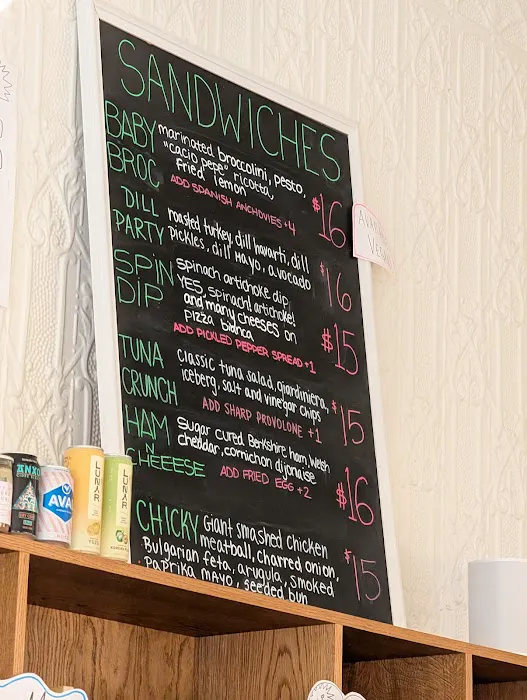 SANDWICHES
BABY BROC
marinated broccolini, pesto,
"cacio pepe" ricotta,
fried lemon
ADD SPANISH ANCHOVIES +4
$16
DILL PARTY
roasted turkey, dill havarti, dill
pickles, dill mayo, avocado
$16
SPIN DIP
spinach artichoke dip
YES, spinach! artichoke!
and many cheeses on
pizza bianca
ADD PICKLED PEPPER SPREAD +1
$15
TUNA CRUNCH
classic tuna salad, giardiniera,
iceberg, salt and vinegar chips
ADD SHARP PROVOLONE +1
$15
HAM N CHEEESE
sugar cured Berkshire ham, welsh
cheddar, cornichon dijonaise
ADD FRIED EGG +2
$16
CHICKY
Giant smashed chicken
meatball, charred onion,
Bulgarian feta, arugula, smoked
paprika mayo, seeded bun
$15
AVA
LUNAR
LUNAR